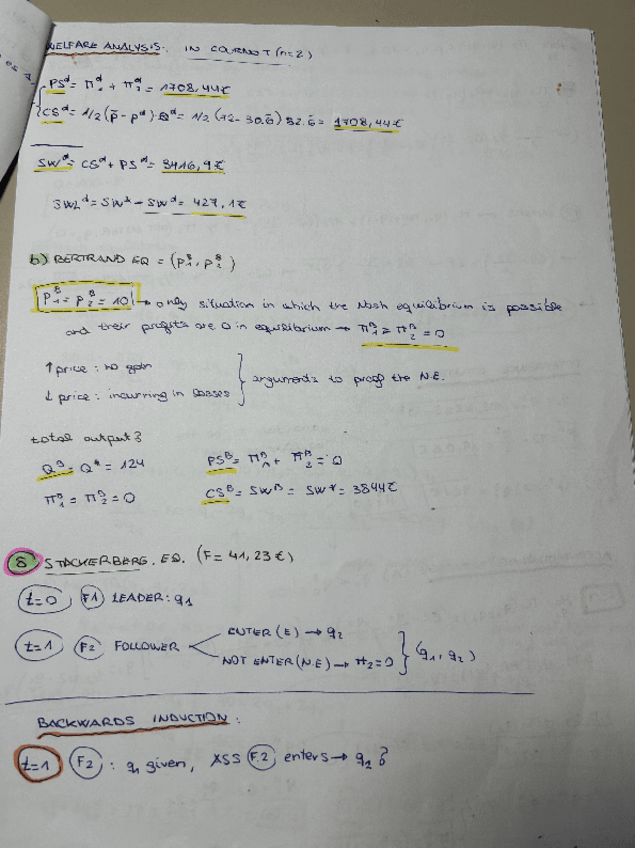 WELFARE ANALYSIS: IN COURNOT (n=2)
PSᵈ = π₁ᵈ + π₂ᵈ = 1708,44€
CSᵈ = 1/2 (p̄ - pᵈ) · Qᵈ = 1/2 (72 - 30.6̄) 82.6̄ = 1708,44€
SWᵈ = CSᵈ + PSᵈ = 3416,9€
SWLᵈ = SW* - SWᵈ = 427,1€
b) BERTRAND EQ = (P₁ᴮ, P₂ᴮ)
P₁ᴮ = P₂ᴮ = 10 → only situation in which the Nash equilibrium is possible
and their profits are 0 in equilibrium → π₁ᴮ = π₂ᴮ = 0
↑ price: no gain
↓ price: incurring in losses } arguments to proof the N.E.
total output?
Qᴮ = Q* = 124
PSᴮ = π₁ᴮ + π₂ᴮ = 0
π₁ᴮ = π₂ᴮ = 0
CSᴮ = SWᴮ = SW* = 3844€
8 STACKERBERG. EQ. (F = 41,23€)
t=0 F1 LEADER: q₁
t=1 F2 FOLLOWER
ENTER (E) → q₂
NOT ENTER (N.E) → π₂=0 } (q₁, q₂)
BACKWARDS INDUCTION:
t=1 F2 : q₁ given, ASS F.2 enters → q₂?